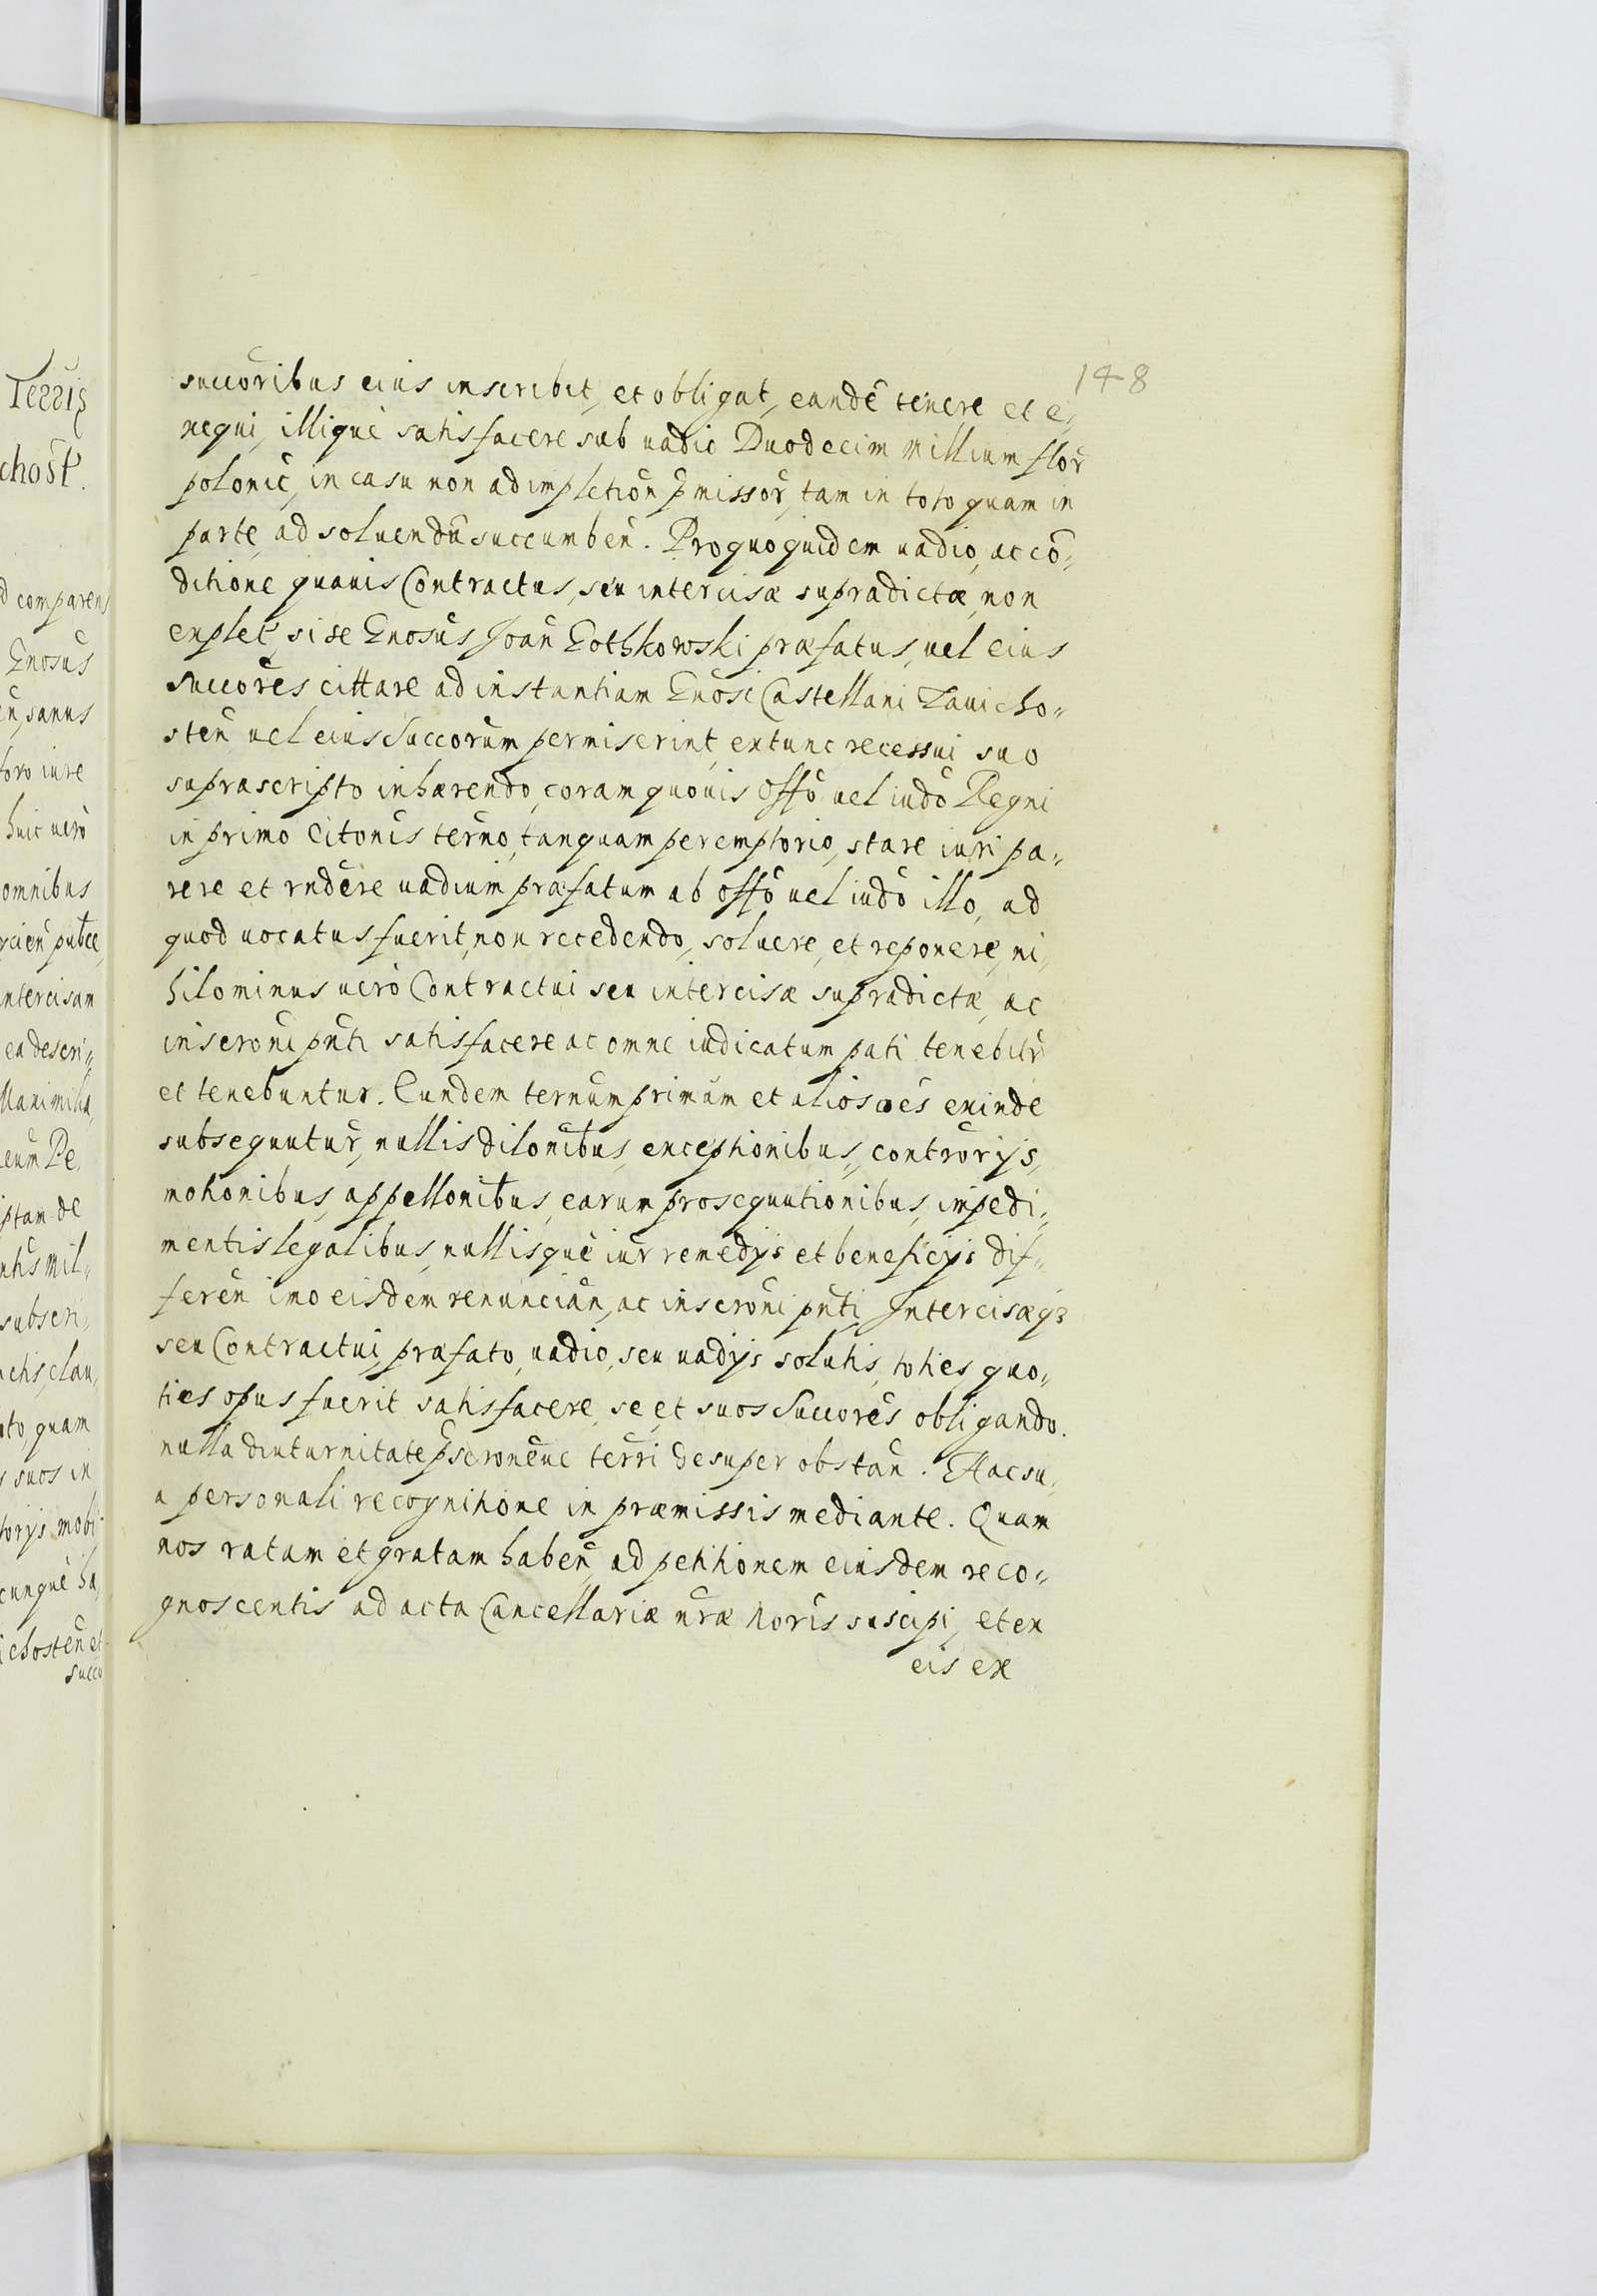 148
succoribus eius inscribit, et obligat, eandē tenere et e,,
xequi, illique satisfacere sub vadio Duodecim Millium flor
polonic, in casu non adimpletion pmissor, tam in toto quam in
parte, ad soluendū succumben. Pro quo quidem vadio, ac cō,,
ditione quavis Contractus, seu intercisæ supradictæ, non
explet, si se Gnosus Joan Gothkowski præfatus, vel eius
succores cittare ad instantiam Gnosi Castellani Zavicho,,
sten vel eius Succorum permiserint, extunc recessui suo
suprascripto inhærendo, coram quovis Offo vel iudo Regni
in primo Citonis terno, tanquam peremptorio, stare iuri pa,,
rere et rndere vadium præfatum ab offo vel iudo illo, ad
quod vocatus fuerit, non recedendo, soluere, et reponere, ni,,
hilominus vero Contractui seu intercisæ supradictæ, ac
inscroni pnti satisfacere ac omne iudicatum pati tenebitr
et tenebuntur. Eundem ternum primum et alios oes exinde
subsequutur, nullis dilonibus, exceptionibus, contrōrijs,
motionibus, appellonibus, earum prosequutionibus, impedi,,
mentis legalibus, nullisque iur remedijs et beneficijs dif,,
feren imo eisdem renuncian, ac inscroni pnti, Intercisæq3
seu Contractui, præfato, vadio, seu vadijs solutis, toties quo,,
ties opus fuerit satisfacere, se, et suos Succores obligando.
nulla diuturnitate pscronēve terri desuper obstan. Hac su,,
a personali recognitione in præmissis mediante. Quam
nos ratam et gratam haben, ad petitionem eiusdem reco,,
gnoscentis ad acta Cancellariæ nræ noris suscipi, et ex
eis ex